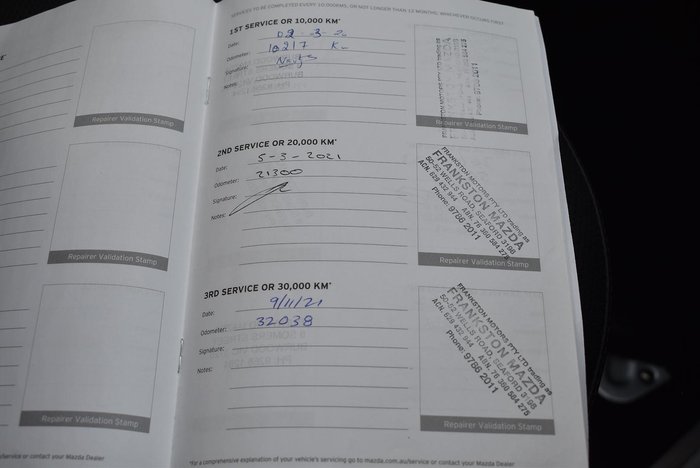 SERVICES TO BE COMPLETED EVERY 10,000KMS, OR NOT LONGER THAN 12 MONTHS, WHICHEVER OCCURS FIRST
1ST SERVICE OR 10,000 KM*
Date:
Odometer: 10217 Km
Signature:
Notes:
Phone: 9786 2011
Repairer Validation Stamp
2ND SERVICE OR 20,000 KM*
Date: 5-3-2021
Odometer: 21300
Signature:
Notes:
FRANKSTON MOTORS PTY LTD trading as
FRANKSTON MAZDA
50-52 WELLS ROAD, SEAFORD 3198
ACN. 629 432 944 ABN. 76 380 584 275
Phone: 9786 2011
Repairer Validation Stamp
3RD SERVICE OR 30,000 KM*
Date: 9/11/21
Odometer: 32038
Signature:
Notes:
FRANKSTON MOTORS PTY LTD trading as
FRANKSTON MAZDA
50-52 WELLS ROAD, SEAFORD 3198
ACN. 629 432 944 ABN. 76 380 584 275
Phone: 9786 2011
Repairer Validation Stamp
*for a comprehensive explanation of your vehicle's servicing go to mazda.com.au/service or contact your Mazda Dealer
Repairer Validation Stamp
Repairer Validation Stamp
Repairer Validation Stamp
/service or contact your Mazda Dealer